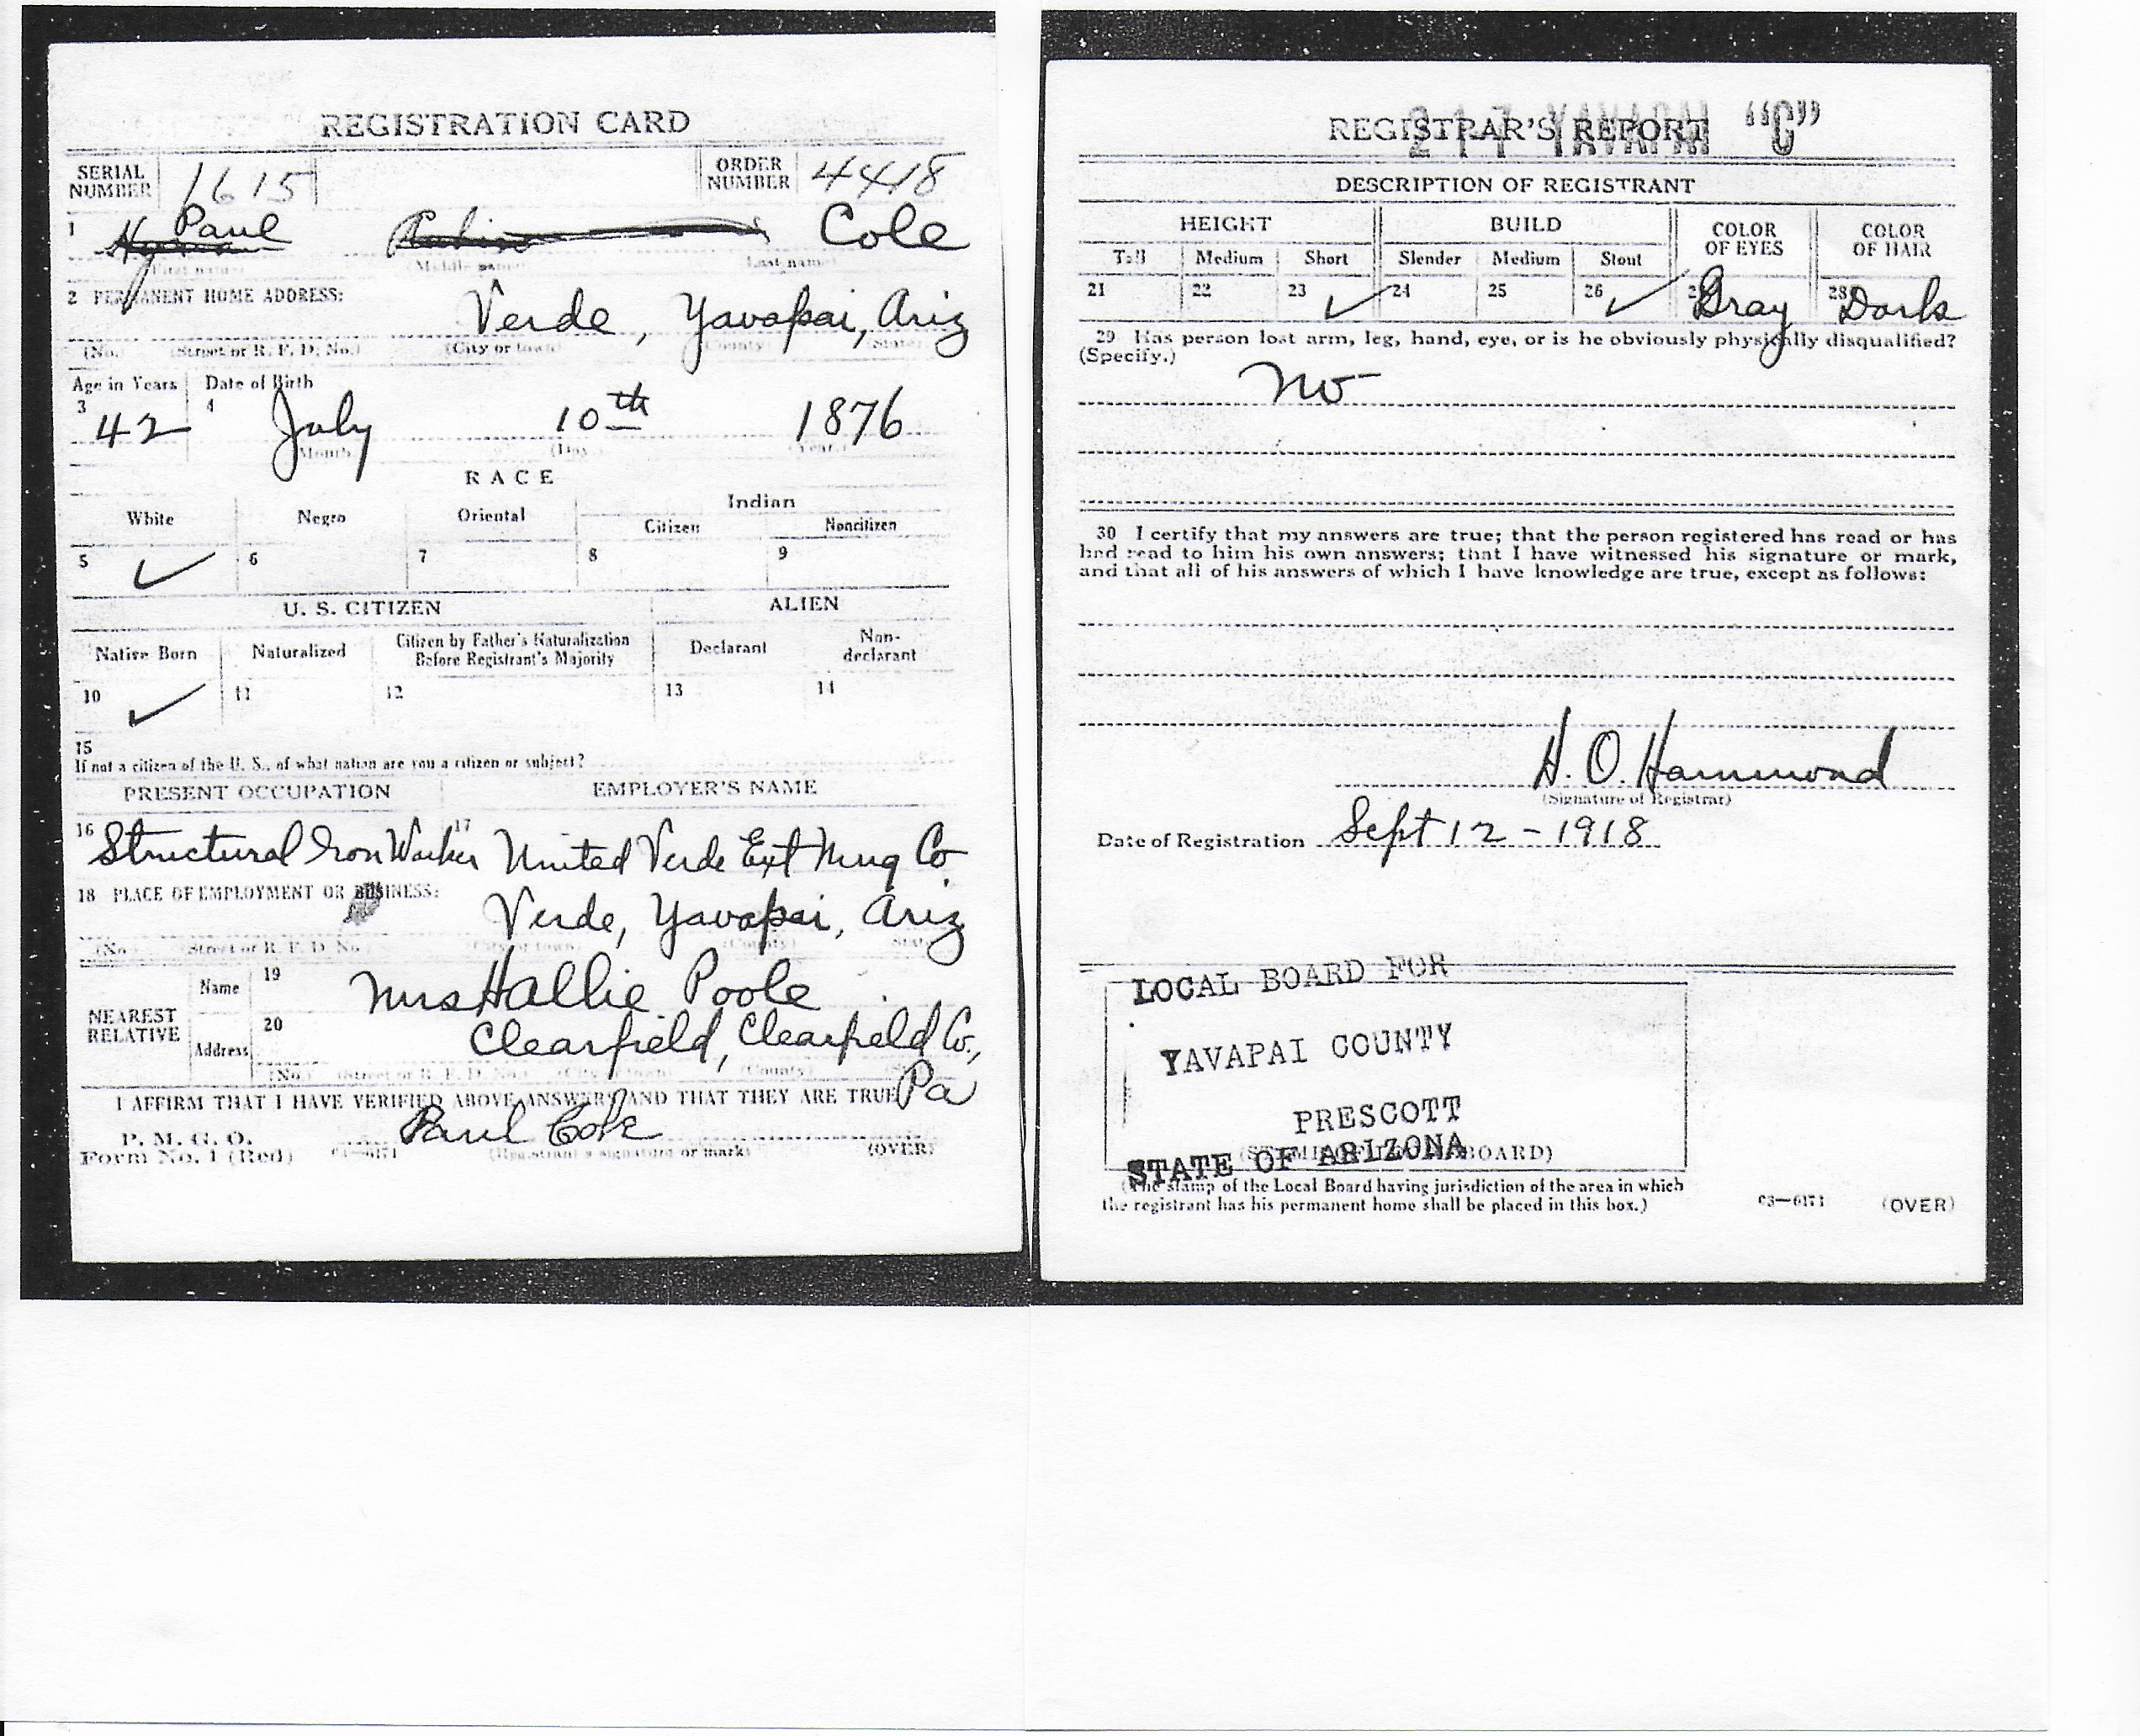 REGISTRATION CARD
SERIAL NUMBER 1615 ORDER NUMBER 4418
1 Paul Cole
(First name) (Middle name) (Last name)
2 PERMANENT HOME ADDRESS:
Verde, Yavapai, Ariz
(No.) (Street or R. F. D. No.) (City or town) (County) (State)
Age in Years Date of Birth
3 42 4 July 10th 1876
(Month) (Day) (Year)
RACE
White Negro Oriental Indian
Citizen Noncitizen
5 ✓ 6 7 8 9
U. S. CITIZEN ALIEN
Native Born Naturalized Citizen by Father's Naturalization Before Registrant's Majority Declarant Non-declarant
10 ✓ 11 12 13 14
15
If not a citizen of the U. S., of what nation are you a citizen or subject?
PRESENT OCCUPATION EMPLOYER'S NAME
16 Structural Iron Worker 17 United Verde Ext Mng Co
18 PLACE OF EMPLOYMENT OR BUSINESS:
Verde, Yavapai, Ariz
(No.) (Street or R. F. D. No.) (City or town) (County) (State)
NEAREST RELATIVE
Name 19 Mrs Hallie Poole
Address 20 Clearfield, Clearfield Co., Pa
(No.) (Street or R. F. D. No.) (City or town) (County) (State)
I AFFIRM THAT I HAVE VERIFIED ABOVE ANSWERS AND THAT THEY ARE TRUE
P. M. G. O.
Form No. 1 (Red) 03—6171 Paul Cole
(Registrant's signature or mark) (OVER)
REGISTRAR'S REPORT
217 YAVAPAI "C"
DESCRIPTION OF REGISTRANT
HEIGHT BUILD COLOR OF EYES COLOR OF HAIR
Tall Medium Short Slender Medium Stout
21 22 23 ✓ 24 25 26 ✓ 27 Gray 28 Dark
29 Has person lost arm, leg, hand, eye, or is he obviously physically disqualified?
(Specify.)
No
30 I certify that my answers are true; that the person registered has read or has
had read to him his own answers; that I have witnessed his signature or mark,
and that all of his answers of which I have knowledge are true, except as follows:
H. O. Hammond
(Signature of Registrar)
Date of Registration Sept 12 - 1918
LOCAL BOARD FOR
YAVAPAI COUNTY
PRESCOTT
STATE OF ARIZONA
(STAMP OF LOCAL BOARD)
(The stamp of the Local Board having jurisdiction of the area in which
the registrant has his permanent home shall be placed in this box.)
03—6171 (OVER)